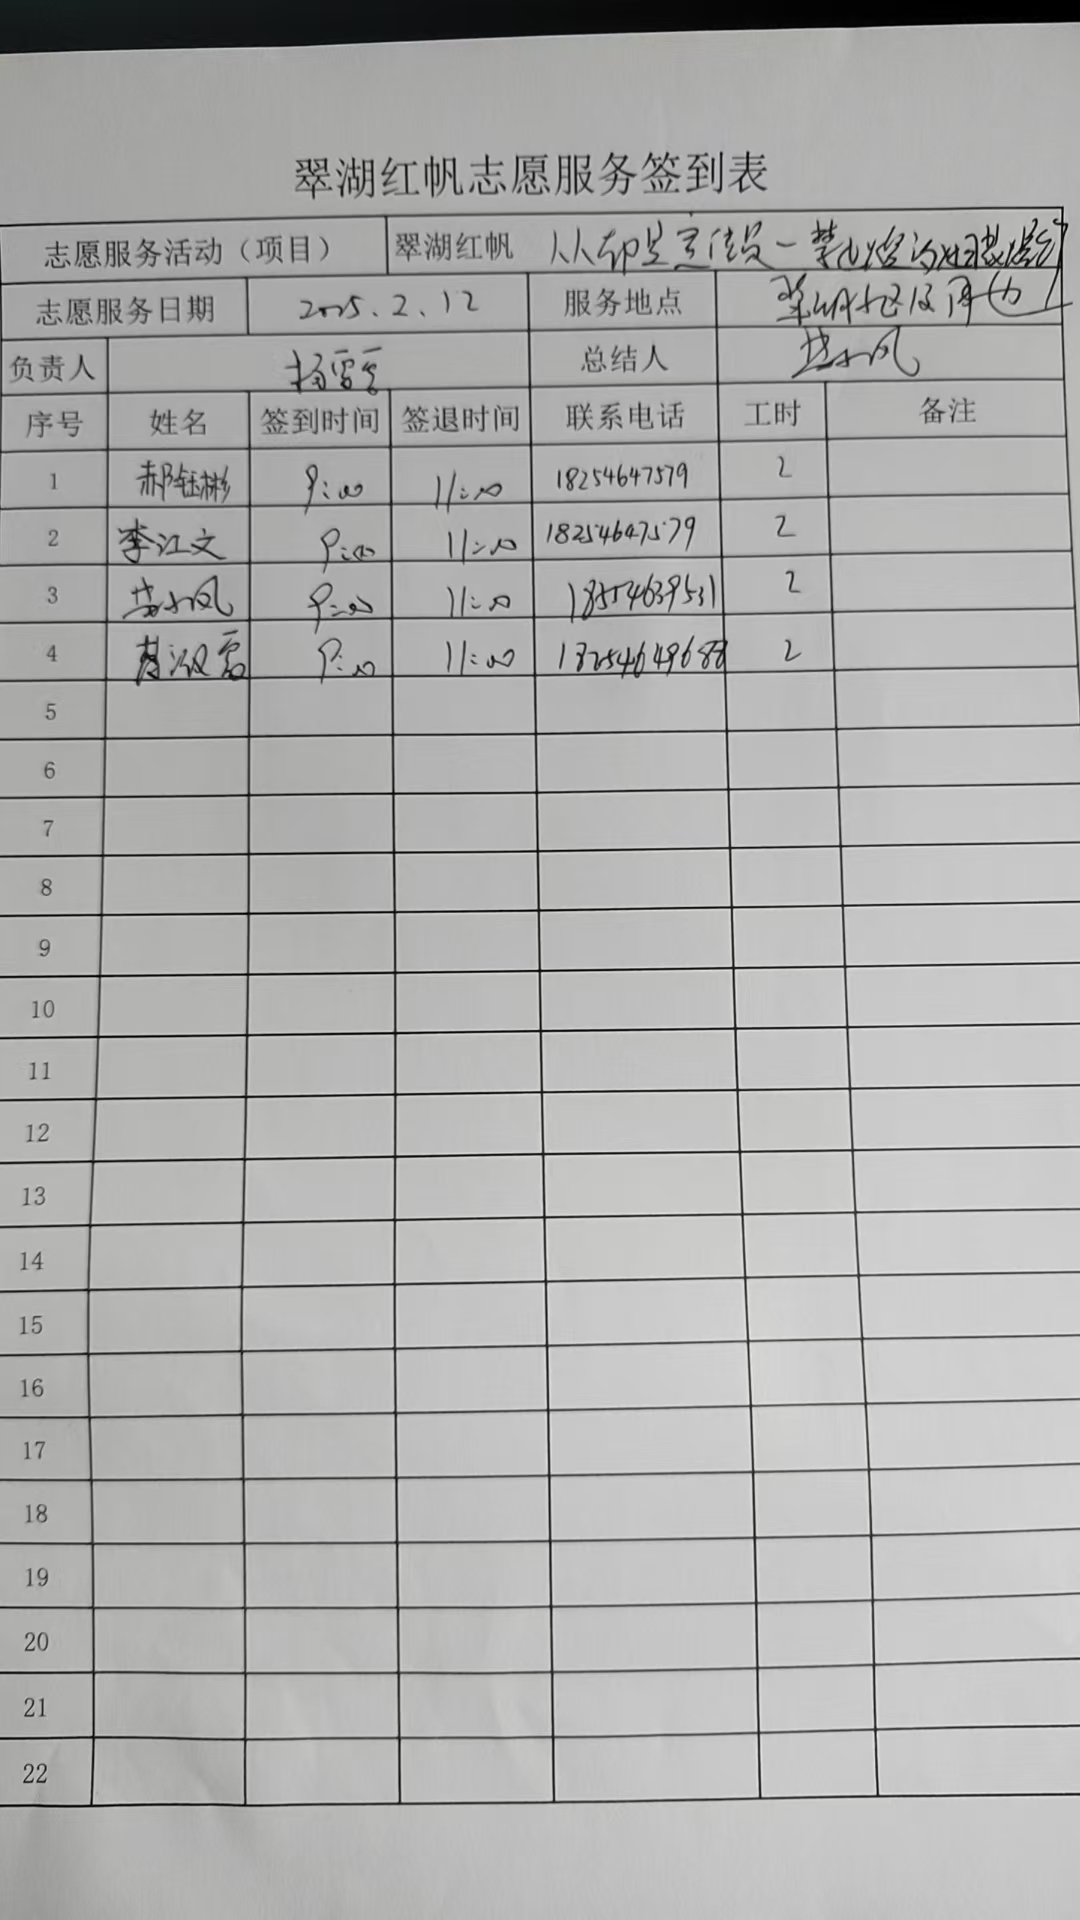 翠湖红帆志愿服务签到表
志愿服务活动（项目） 翠湖红帆 人人都是宣传员一禁止燃
志愿服务日期 2025.2.12 服务地点 翠湖社区及周边
负责人 杨雪雪 总结人 小风
序号 姓名 签到时间 签退时间 联系电话 工时 备注
1 郝钰彬 9:00 11:00 18254647579 2
2 李江文 9:00 11:00 18254647579 2
3 小风 9:00 11:00 18554639531 2
4 9:00 11:00 18254649688 2
5
6
7
8
9
10
11
12
13
14
15
16
17
18
19
20
21
22